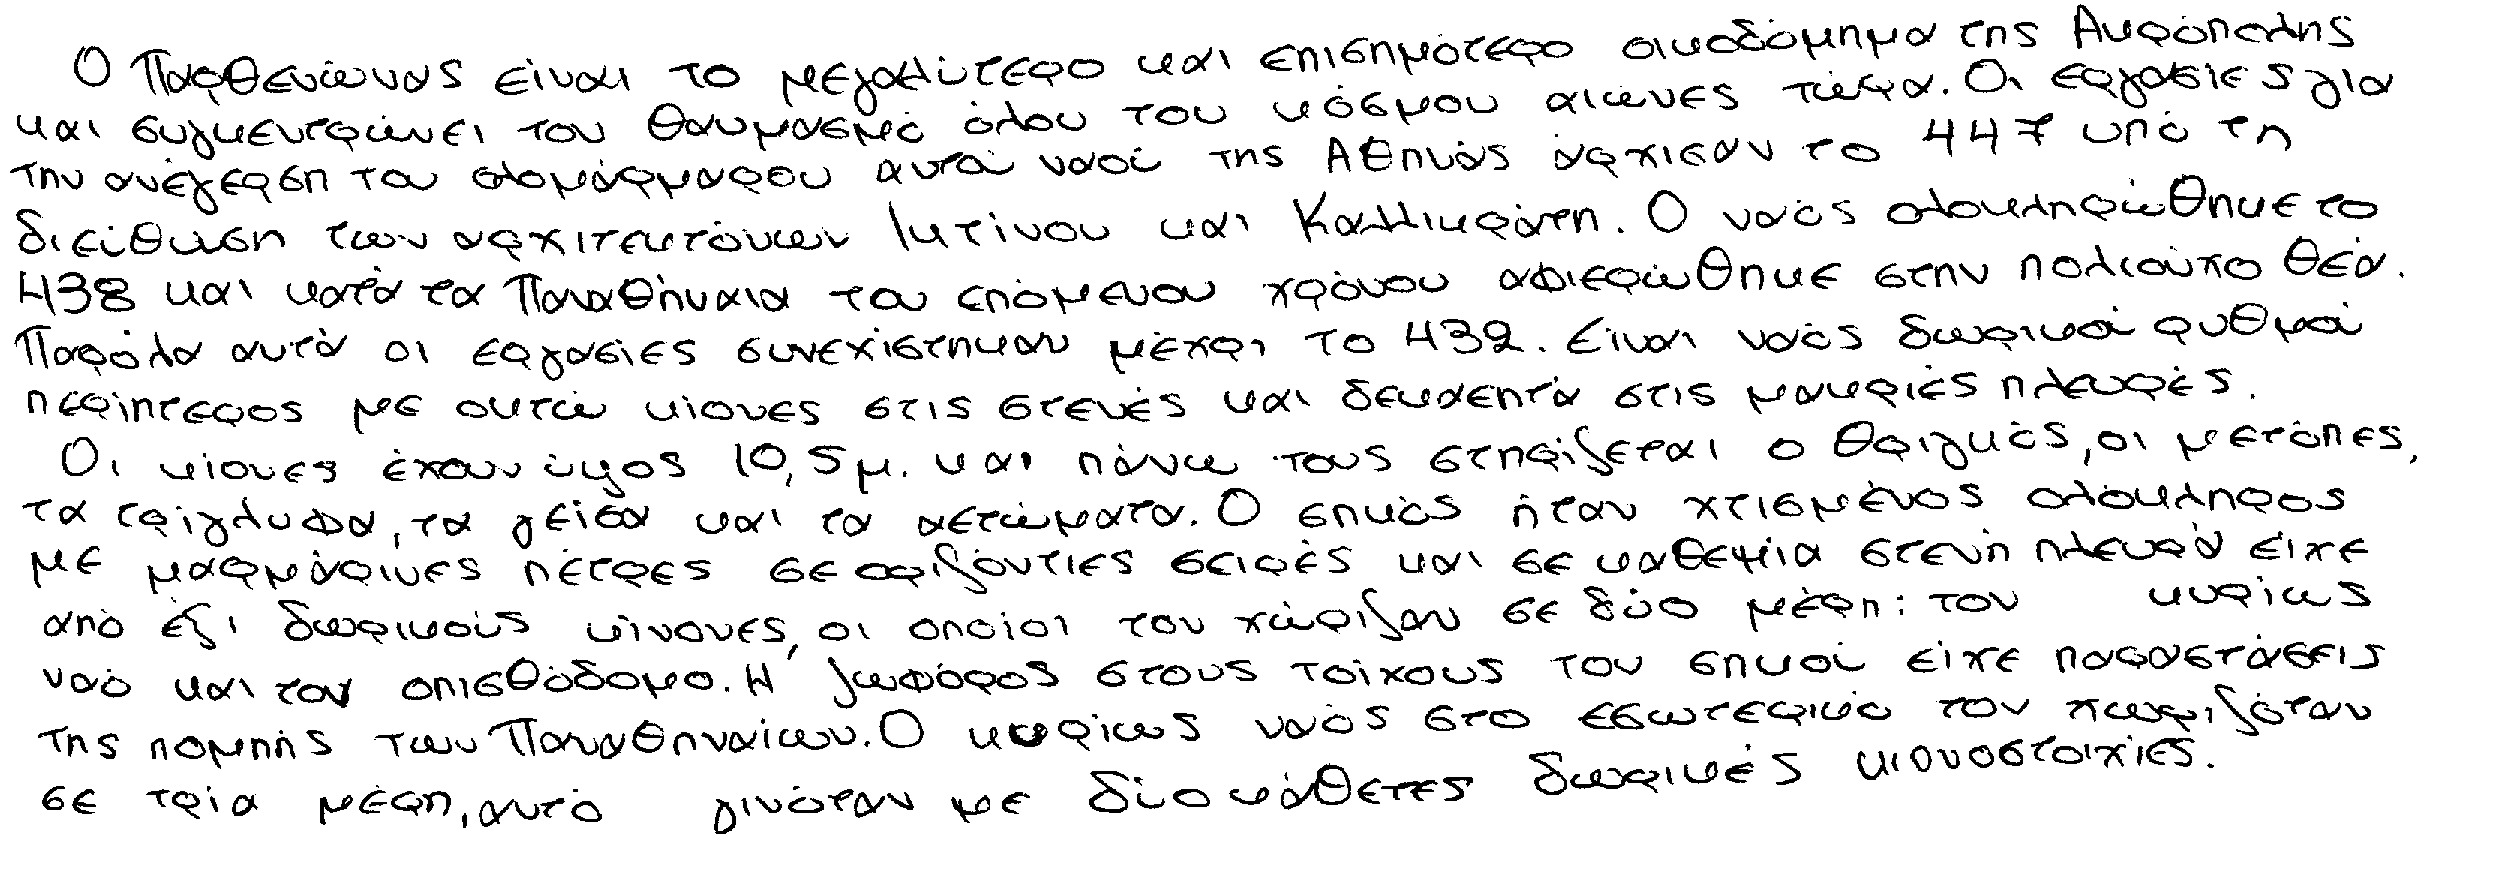 Ο Παρθενώνας είναι το μεγαλύτερο και επισημότερο οικοδόμημα της Ακρόπολης
και συγκεντρώνει τον θαυμασμό όλου του κόσμου αιώνες τώρα. Οι εργασίες για
την ανέγερση του ολομάρμαρου αυτού ναού της Αθηνάς άρχισαν το 447 υπό τη
διεύθυση των αρχιτεκτόνων Ικτίνου και Καλλικράτη. Ο ναός ολοκληρώθηκε το
438 και κατά τα Παναθήναια του επόμενου χρόνου αφιερώθηκε στην πολιούχο θεά.
Παρόλα αυτά οι εργασίες συνεχίστηκαν μέχρι το 432. Είναι ναός δωρικού ρυθμού
περίπτερος με οκτώ κίονες στις στενές και δεκαεπτά στις μακριές πλευρές.
Οι κίονες έχουν ύψος 10,5μ. και πάνω τους στηρίζεται ο θριγκός, οι μετόπες,
τα τρίγλυφα, τα γείσα και τα αετώματα. Ο σηκός ήταν χτισμένος ολόκληρος
με μαρμάρινες πέτρες σε οριζόντιες σειρές και σε καθεμία στενή πλευρά είχε
από έξι δωρικούς κίνονες, οι οποίοι τον χώριζαν σε δύο μέρη: τον κυρίως
ναό και τον οπισθόδομο. Η ζωφόρος στους τοίχους του σηκού είχε παραστάσεις
της πομπής των Παναθηναίων. Ο κυρίως ναός στο εσωτερικό του χωριζόταν
σε τρία μέρη, αυτό γινόταν με δύο κάθετες δωρικές κιονοστοιχίες.